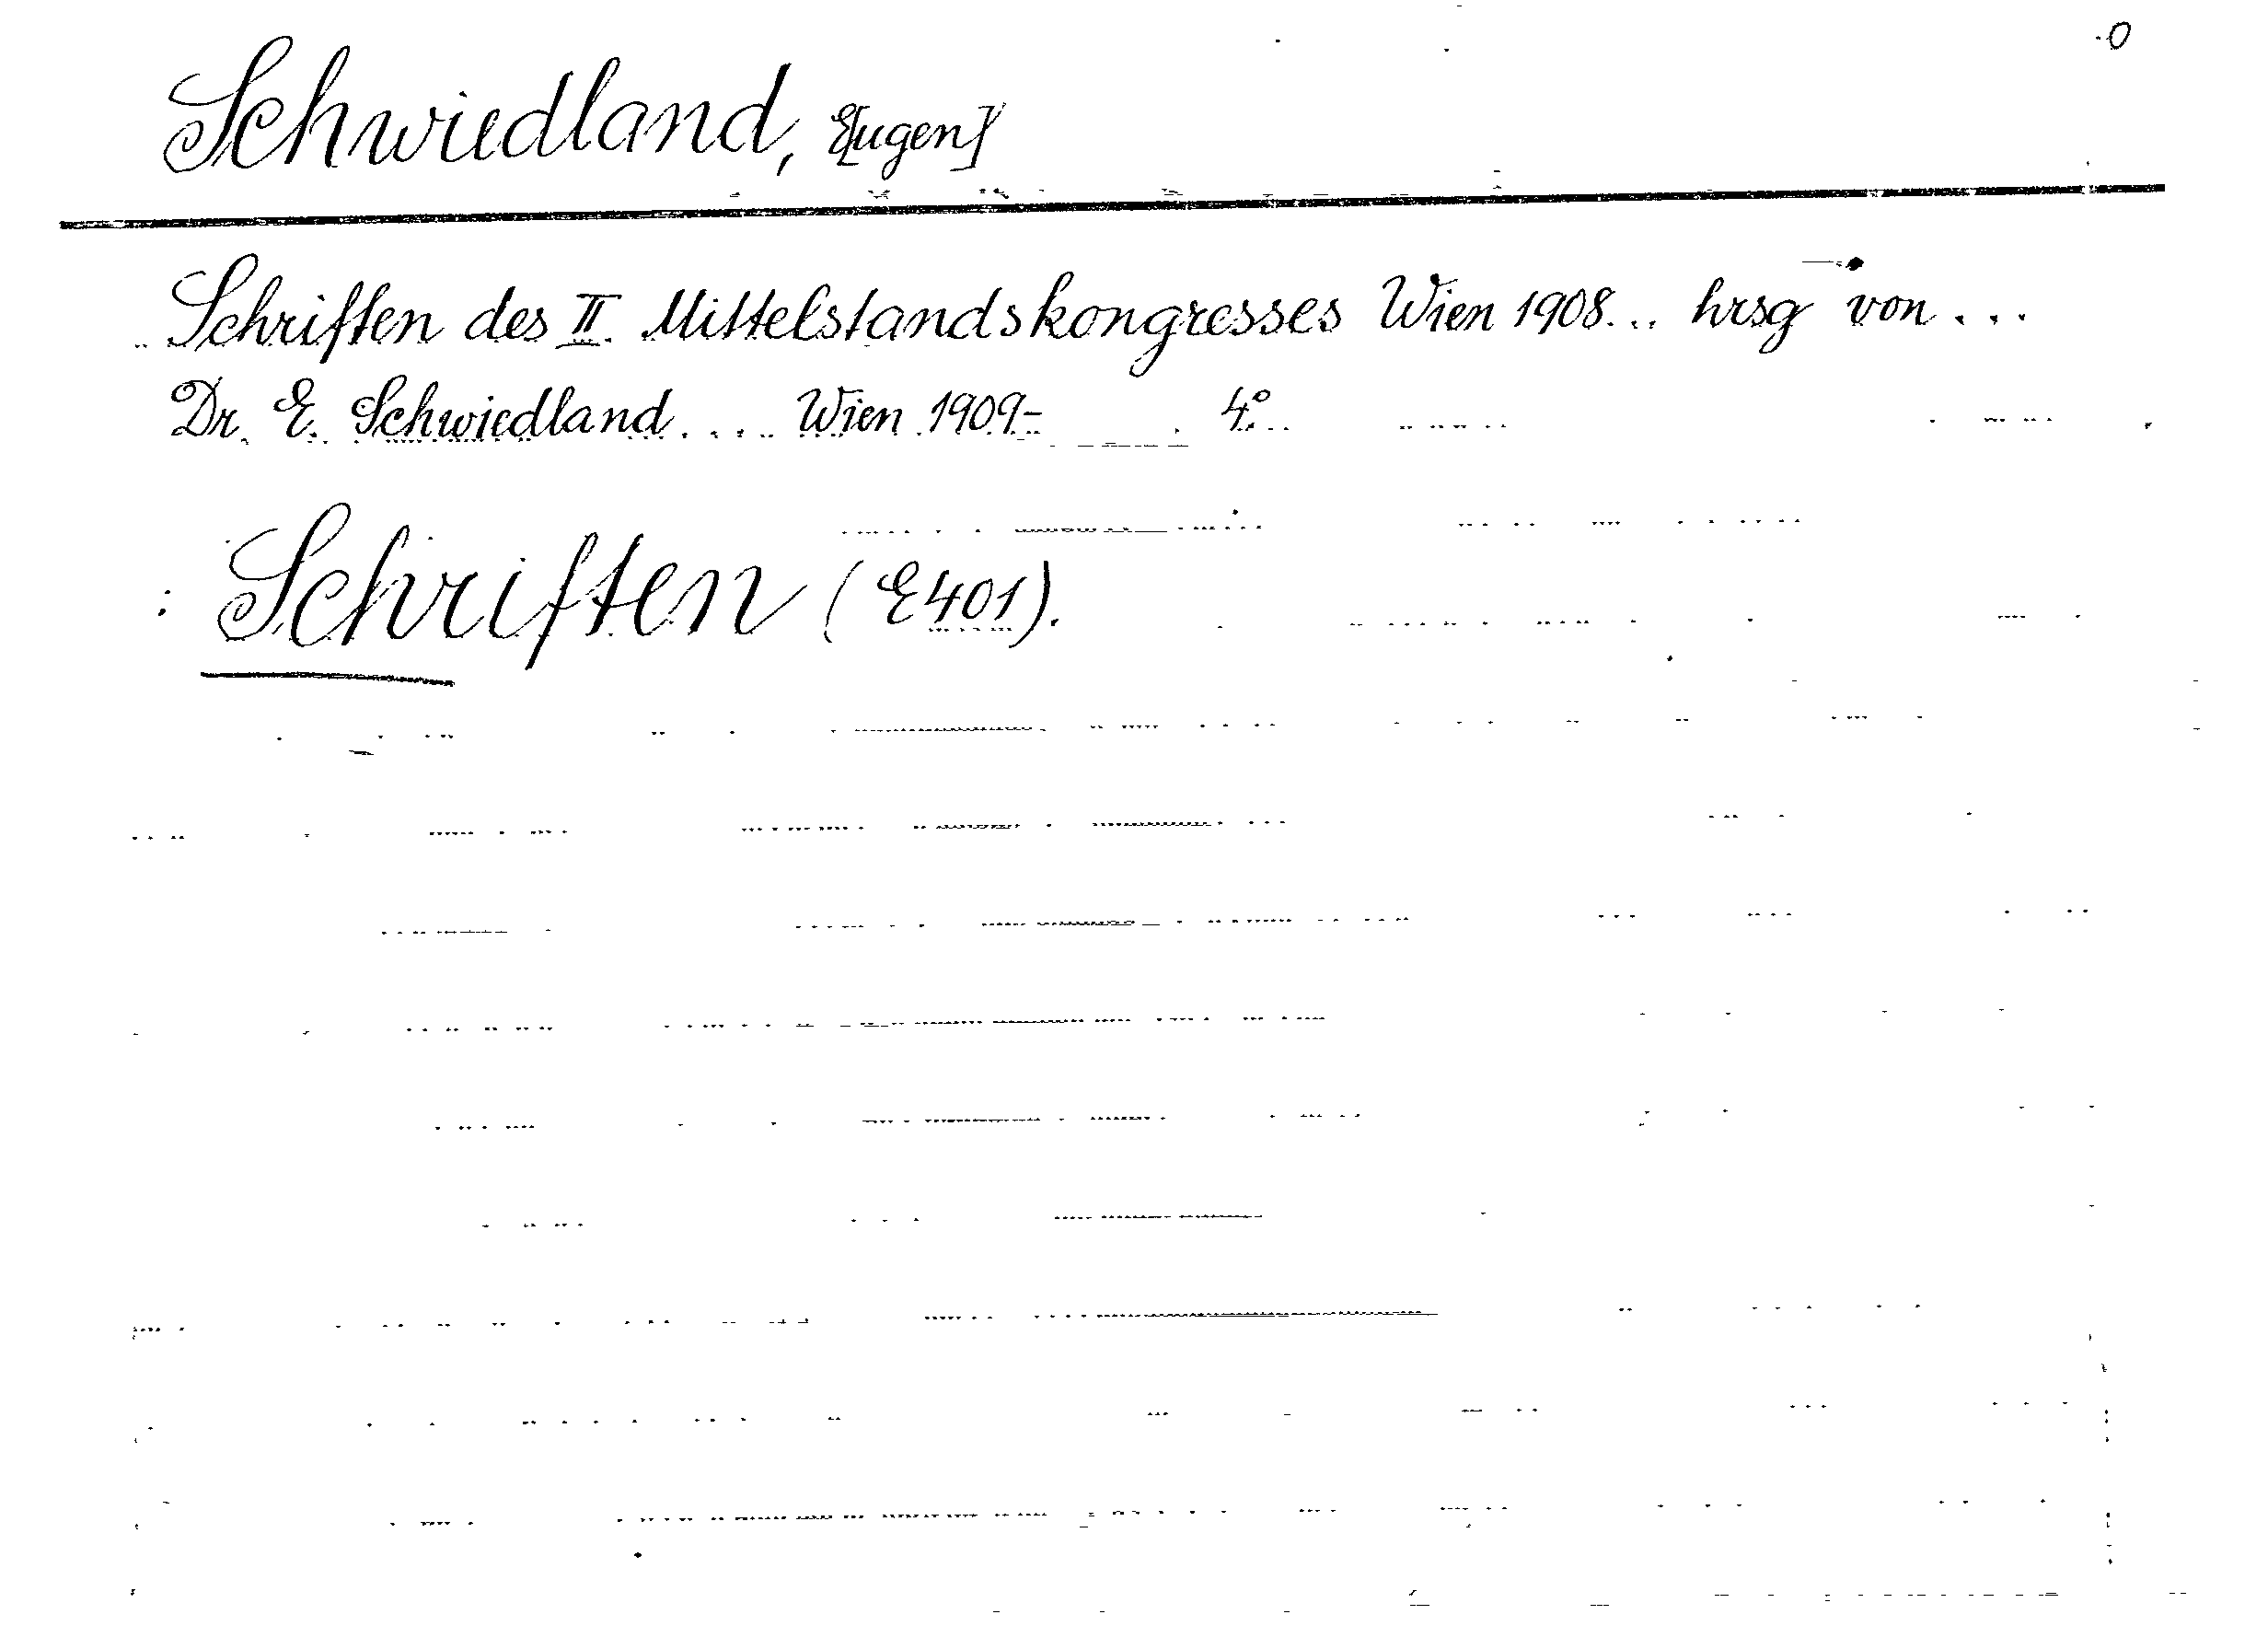 0
Schwiedland, E[ugen]
Schriften des II. Mittelstandskongresses Wien 1908... hrsg von...
Dr. E. Schwiedland.... Wien 1909- 4°.
: Schriften (E401).